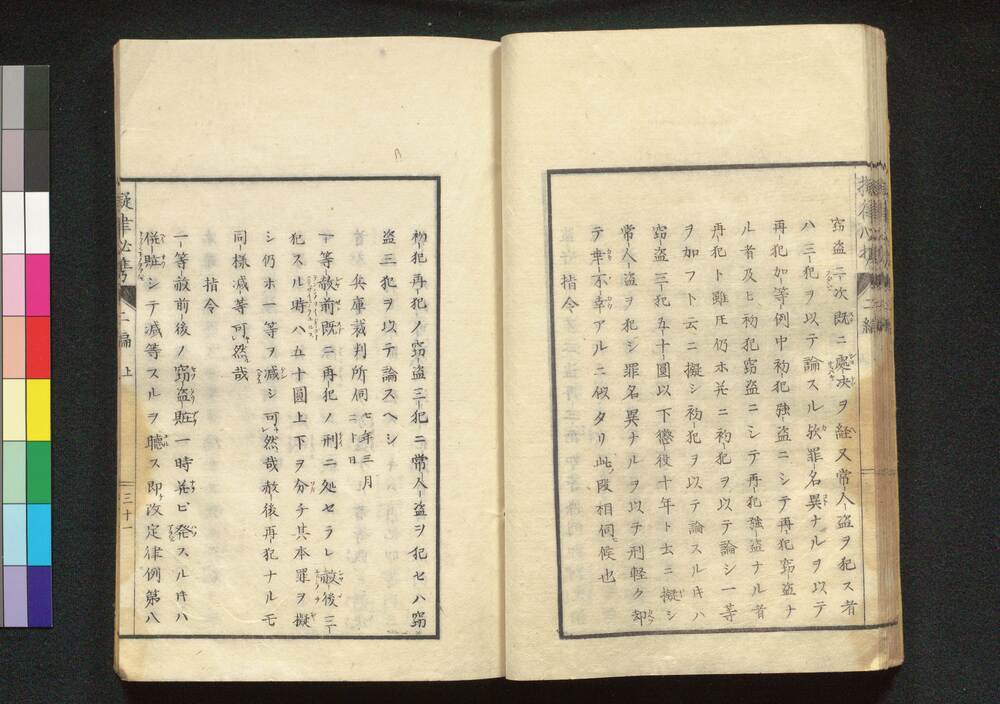 窃盗二次既ニ處决ヲ経又常人盗ヲ犯ス者
ハ三犯ヲ以テ論スル欤罪名異ナルヲ以テ
再犯加等例中初犯強盗ニシテ再犯窃盗ナ
ル者及ヒ初犯窃盗ニシテ再犯強盗ナル者
再犯ト雖𪜈仍ホ並ニ初犯ヲ以テ論シ一等
ヲ加フト云ニ擬シ初犯ヲ以テ論スルキハ
窃盗三犯五十圓以下懲役十年ト云ニ擬シ
常人盗ヲ犯シ罪名異ナルヲ以テ刑軽ク却
テ幸不幸アルニ似タリ此段相伺候也
指令
初犯再犯ノ窃盗三犯ニ常人盗ヲ犯セハ窃
盗三犯ヲ以テ論スヘシ
兵庫裁判所伺 七年三月二十日
一等赦前既ニ再犯ノ刑ニ処セラレ赦後三
犯スル時ハ五十圓上下ヲ分チ其本罪ヲ擬
シ仍ホ一等ヲ减シ可然哉赦後再犯ナルモ
同様减等可然哉
指令
一等赦前後ノ窃盗賍一時並ビ発スルキハ
従賍シテ减等スルヲ聴ス即改定律例第八
擬律必携 二編 上 三十一
二編